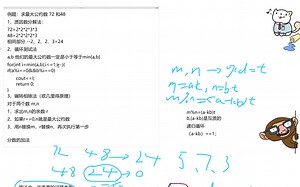 例题：求最大公约数 72 和48
1、原因数分解法:
72=2*2*2*3*3
48=2*2*2*2*3
相同部分 -2、2、2、3=24
2、循环测试法
a,b 他们的最大公约数一定是小于等于min(a,b)
for(int i=min(a,b);i<=1;i--){
if(a%i==0&&b%i==0){
cout<<i;
return 0;
}
3、辗转相除法（欧几里得原理）
对于两个数 m,n
1、求出m,n的余数r
2、如果r==0,n就是最大公约数
3、用n替换m、r替换n、再次执行第一步
分数的加法
m,n → gcd=t
m=at, n=bt
m%n=(a-kb)t
b,(a-kb)是互质的
递归循环
(a-kb) ==1;
72 48 → 24
48 24 → 0
5、7、3